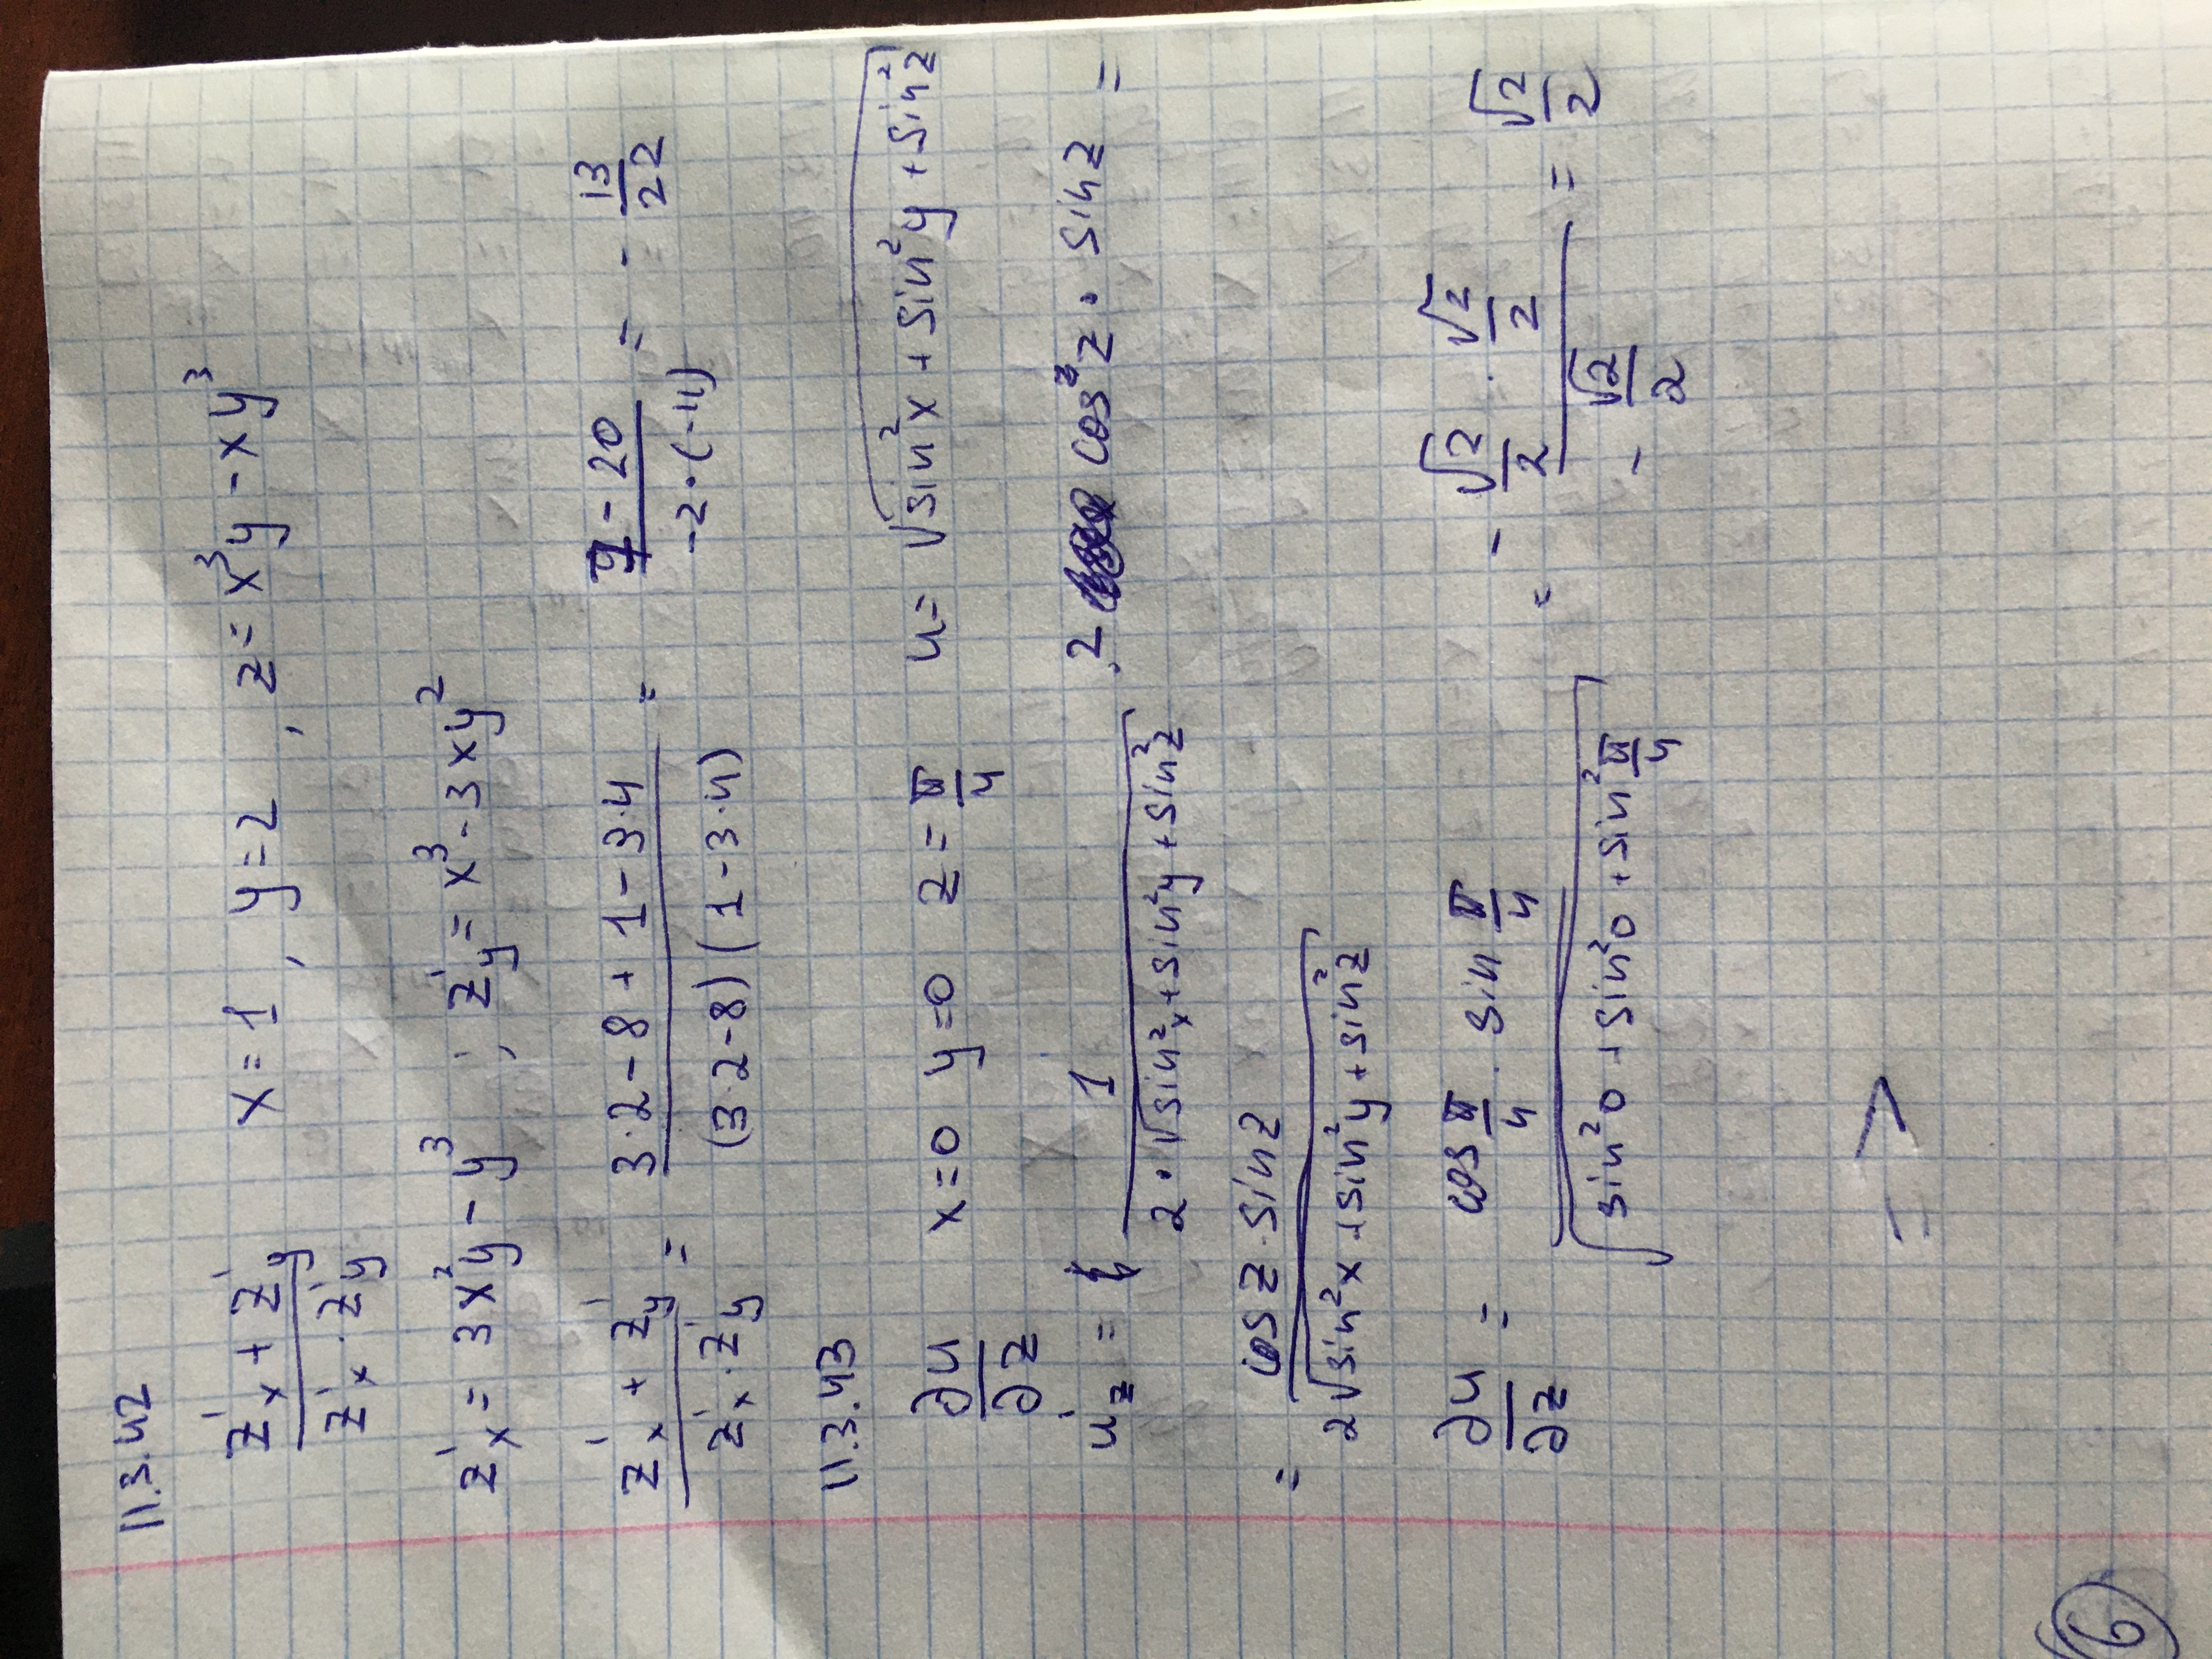 11.3.42
(z'ₓ + z'ᵧ) / (z'ₓ · z'ᵧ)   x = 1, y = 2, z = x³y - xy³
z'ₓ = 3x²y - y³ ; z'ᵧ = x³ - 3xy²
(z'ₓ + z'ᵧ) / (z'ₓ · z'ᵧ) = (3·2 - 8 + 1 - 3·4) / ((3·2-8)(1-3·4)) = (7 - 20) / (-2·(-11)) = - 13/22
11.3.43
∂u/∂z   x = 0   y = 0   z = π/4   u = √(sin²x + sin²y + sin²z)
u'z = 1 / (2·√(sin²x + sin²y + sin²z)) · 2 cos²z · sin z =
= cos z · sin z / (2√(sin²x + sin²y + sin²z))
∂u/∂z = (cos π/4 · sin π/4) / √(sin²0 + sin²0 + sin² π/4) = (- √2/2 · √2/2) / (- √2/2) = √2/2
=>
6